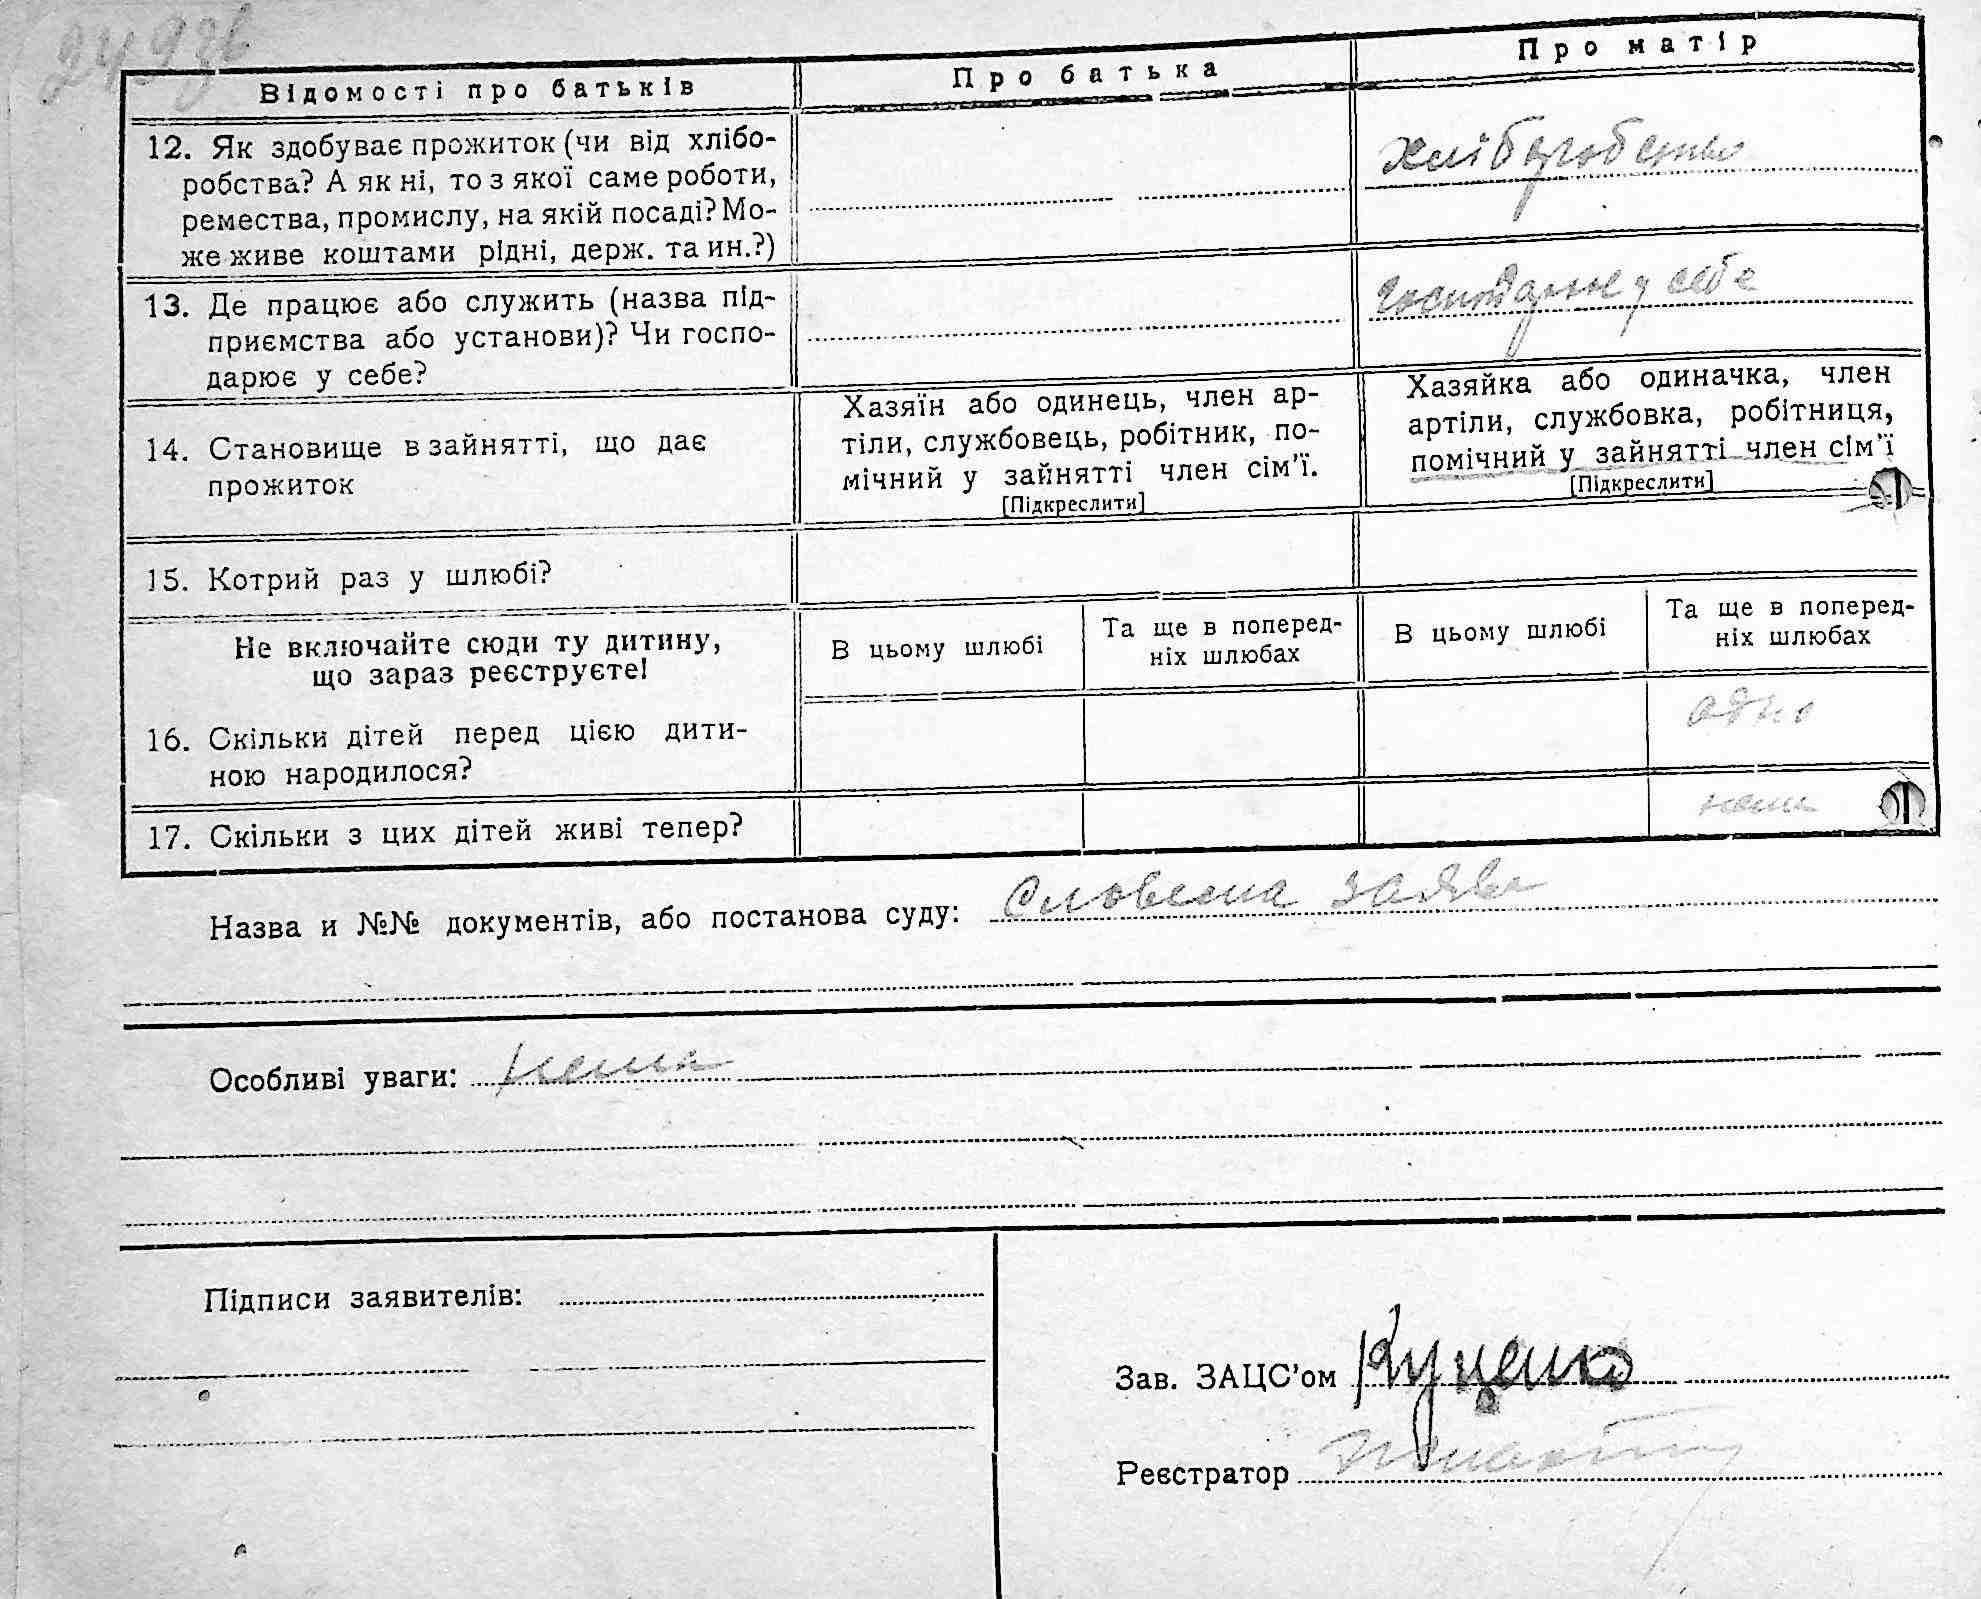 Відомості про батьків
Про батька
Про матір
12. Як здобуває прожиток (чи від хлібо-
робства? А як ні, то з якої саме роботи,
ремества, промислу, на якій посаді? Мо-
же живе коштами рідні, держ. та ин.?)
хліборобство
13. Де працює або служить (назва під-
приємства або установи)? Чи госпо-
дарює у себе?
господарює у себе
14. Становище в зайнятті, що дає
прожиток
Хазяїн або одинець, член ар-
тіли, службовець, робітник, по-
мічний у зайнятті член сім'ї.
[Підкреслити]
Хазяйка або одиначка, член
артіли, службовка, робітниця,
помічний у зайнятті член сім'ї
[Підкреслити]
15. Котрий раз у шлюбі?
Не включайте сюди ту дитину,
що зараз реєструєте!
В цьому шлюбі
Та ще в поперед-
ніх шлюбах
В цьому шлюбі
Та ще в поперед-
ніх шлюбах
16. Скільки дітей перед цією дити-
ною народилося?
одно
17. Скільки з цих дітей живі тепер?
нема
Назва и №№ документів, або постанова суду: Словесна заява
Особливі уваги: нема
Підписи заявителів:
Зав. ЗАЦС'ом Куценко
Реєстратор